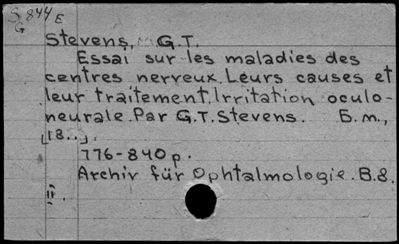 S.844 E
G
Stevens, G.T.
Essai sur les maladies des
centres nerveux. Leurs causes et
leur traitement. Irritation oculo-
neurale. Par G.T. Stevens. Б.м.,
[18..].
776-840 p.
Archiv für Ophtalmologie. B.8.
IV.